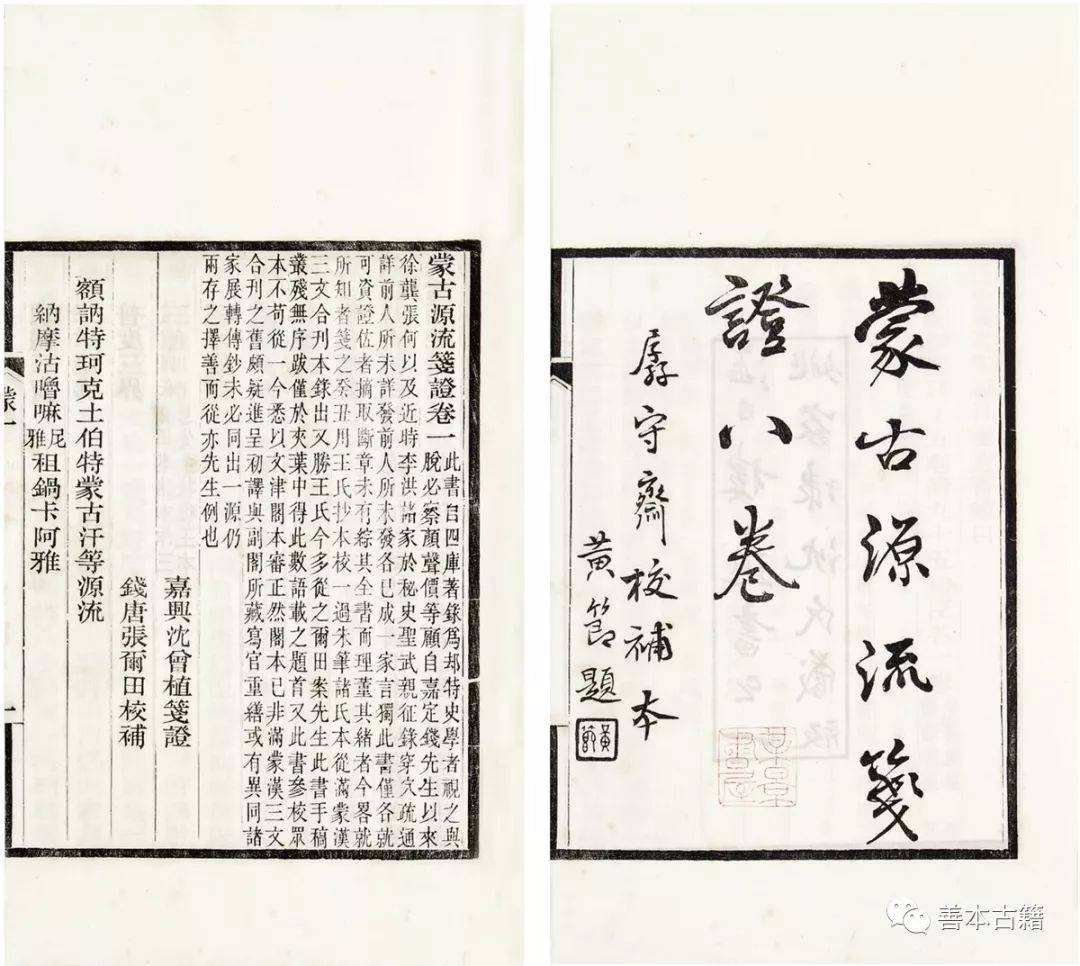 蒙古源流箋
證八卷
孱守齋校補本
黃節題
黃節
蒙古源流箋證卷一
此書自四庫著錄爲却特史學者視之與
脫必察顏聲價等顧自嘉定錢先生以來
徐龔張何以及近時李洪諸家於秘史聖武親征錄穿穴疏通
詳前人所未詳發前人所未發各已成一家言獨此書僅各就
可資證佐者摘取斷章未有綜其全書而理董其緒者今畧就
所知者箋之癸丑用王氏抄本校一過朱筆諸氏本從滿蒙漢
三文合刊本錄出又勝王氏今多從之爾田案先生此書手稿
叢殘無序跋僅於夾葉中得此數語載之題首又此書參校眾
本不苟從一今悉以文津閣本審正然閣本已非滿蒙漢三文
合刊之舊頗疑進呈初譯與副閣所藏寫官重繕或有異同諸
家展轉傳鈔未必同出一源仍
兩存之擇善而從亦先生例也
嘉興沈曾植箋證
錢唐張爾田校補
額訥特珂克土伯特蒙古汗等源流
納摩沽嚕嘛尼雅祖鍋卡阿雅
一
善本古籍